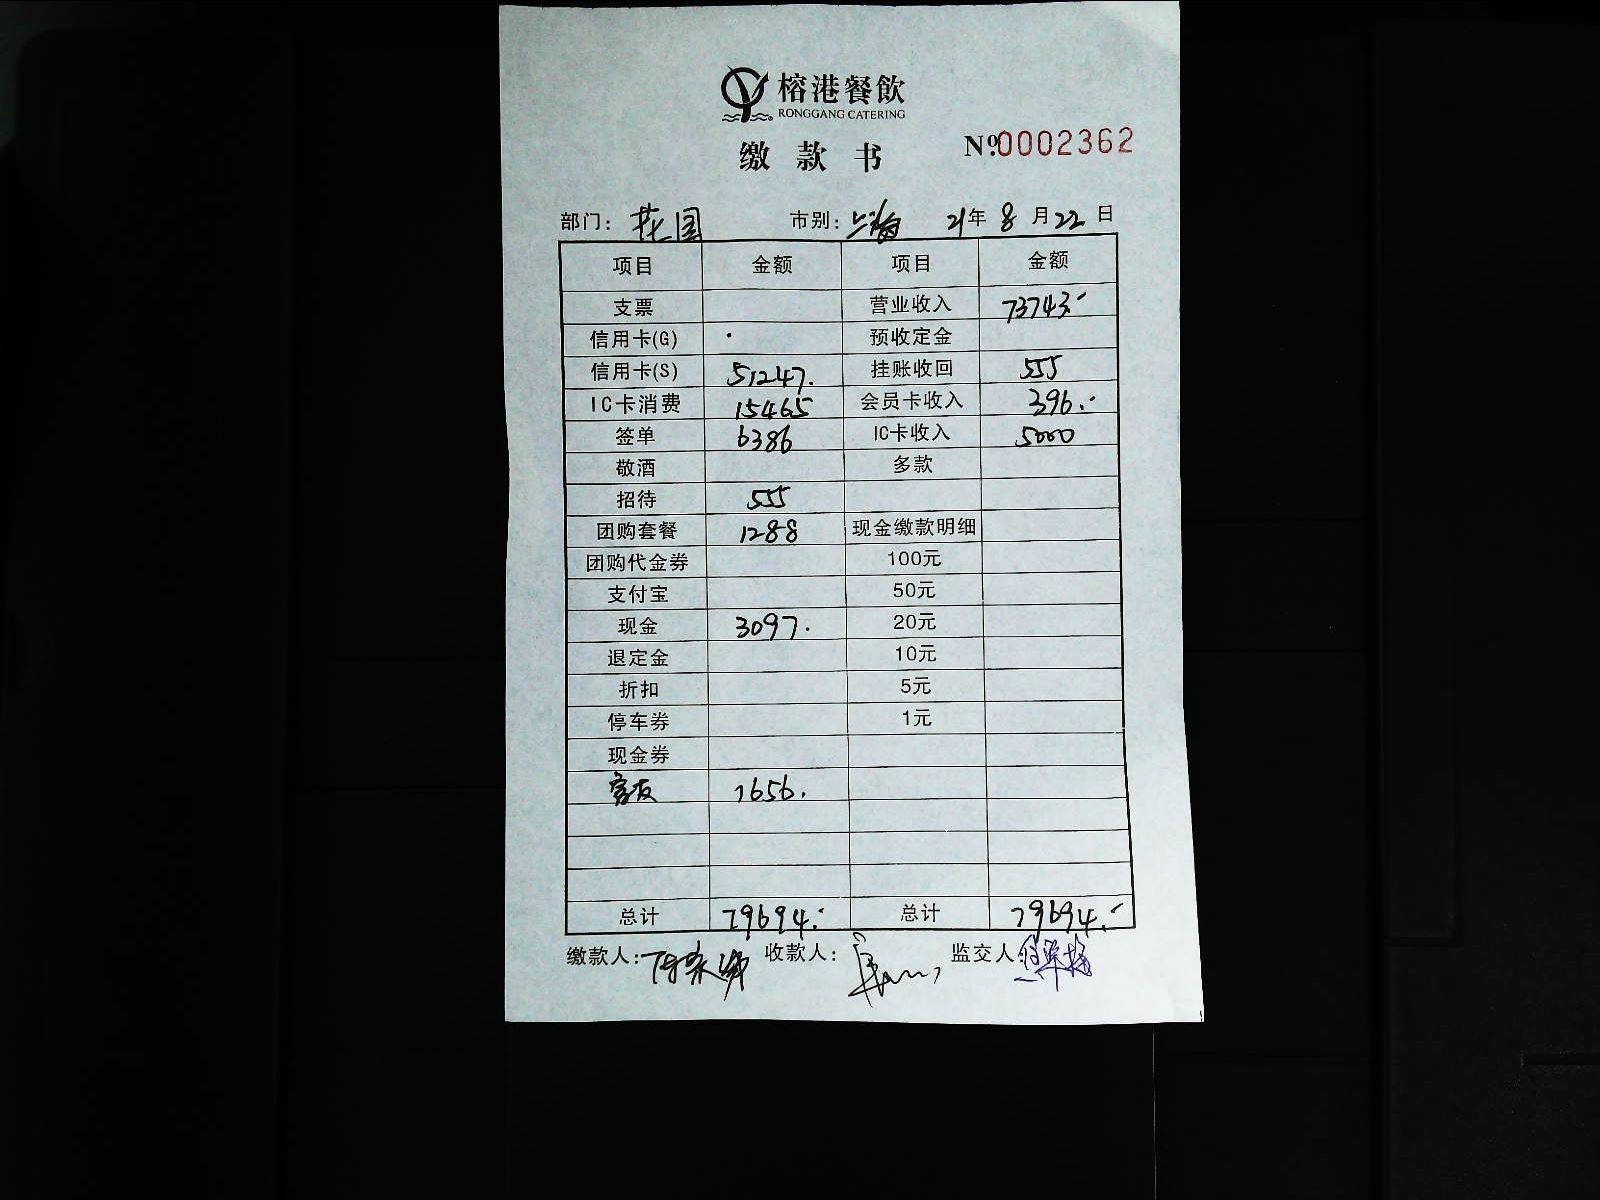 榕港餐飲
RONGGANG CATERING
缴款书
№0002362
部门: 花园 市别: 上海 21年8月22日
项目 金额 项目 金额
支票 营业收入 73743.-
信用卡(G) 预收定金
信用卡(S) 51247. 挂账收回 555
IC卡消费 15465 会员卡收入 396.-
签单 6386 IC卡收入 5000
敬酒 多款
招待 555
团购套餐 1288 现金缴款明细
团购代金券 100元
支付宝 50元
现金 3097. 20元
退定金 10元
折扣 5元
停车券 1元
现金券
1656.
总计 79694.- 总计 79694.-
缴款人: 收款人: 监交人: